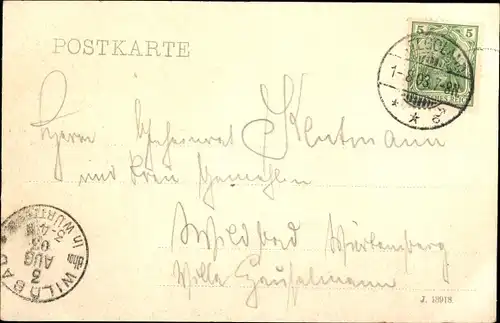 POSTKARTE
5 5
BRESLAU
1-8 03 7-8N
* * *
Herrn Geheimrat Klutmann
und Frau Gemahlin
Wildbad Würtemberg
Villa Hauselmann
WILDBAD
3
AUG
03
3-4 N
In WÜRTT
J. 13918